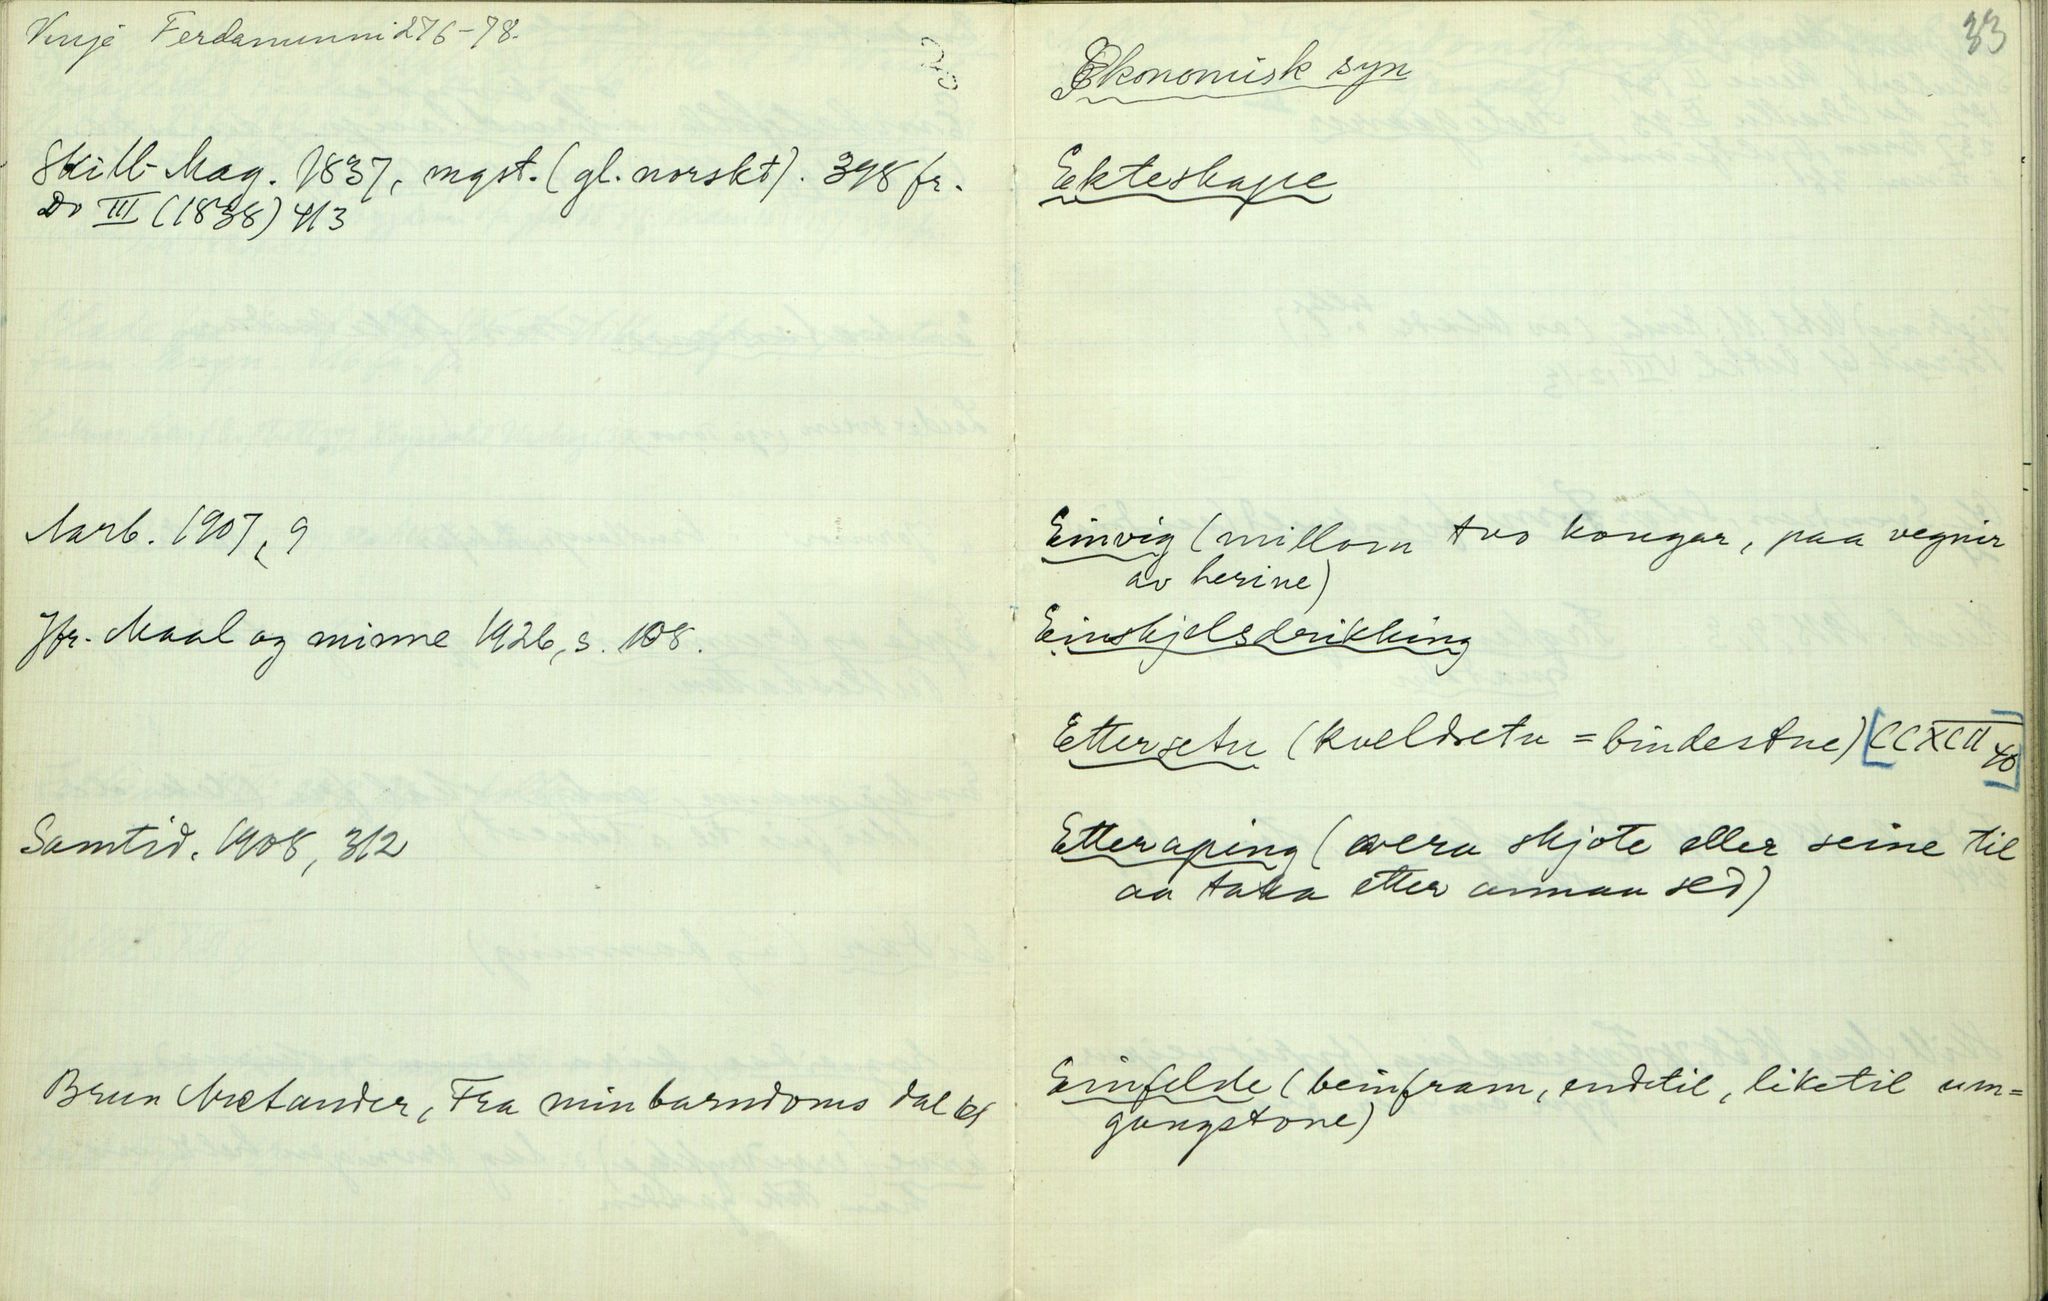 Vinje Ferdaminni 276-78.
Skill-Mag. 1837, mgst. (gl. norskt). 398 fr.
Do III (1838) 413
Aarb. 1907, 9
Jfr. Maal og minne 1926, s. 108.
Samtid. 1908, 312
Brun Arctander, Fra min barndoms dal 61
33
Økonomisk syn
Ekteskape
Einvig (millom tvo kongar, paa vegnir
av herine)
Einskjelsdrikking
Ettersetu (kveldsetu = bindestue) [CCXCII 40]
Etteraping (vera skjote eller seine til
aa taka etter annan sed)
Einfelde (beinfram, endetil, liketil um=
gangstone)